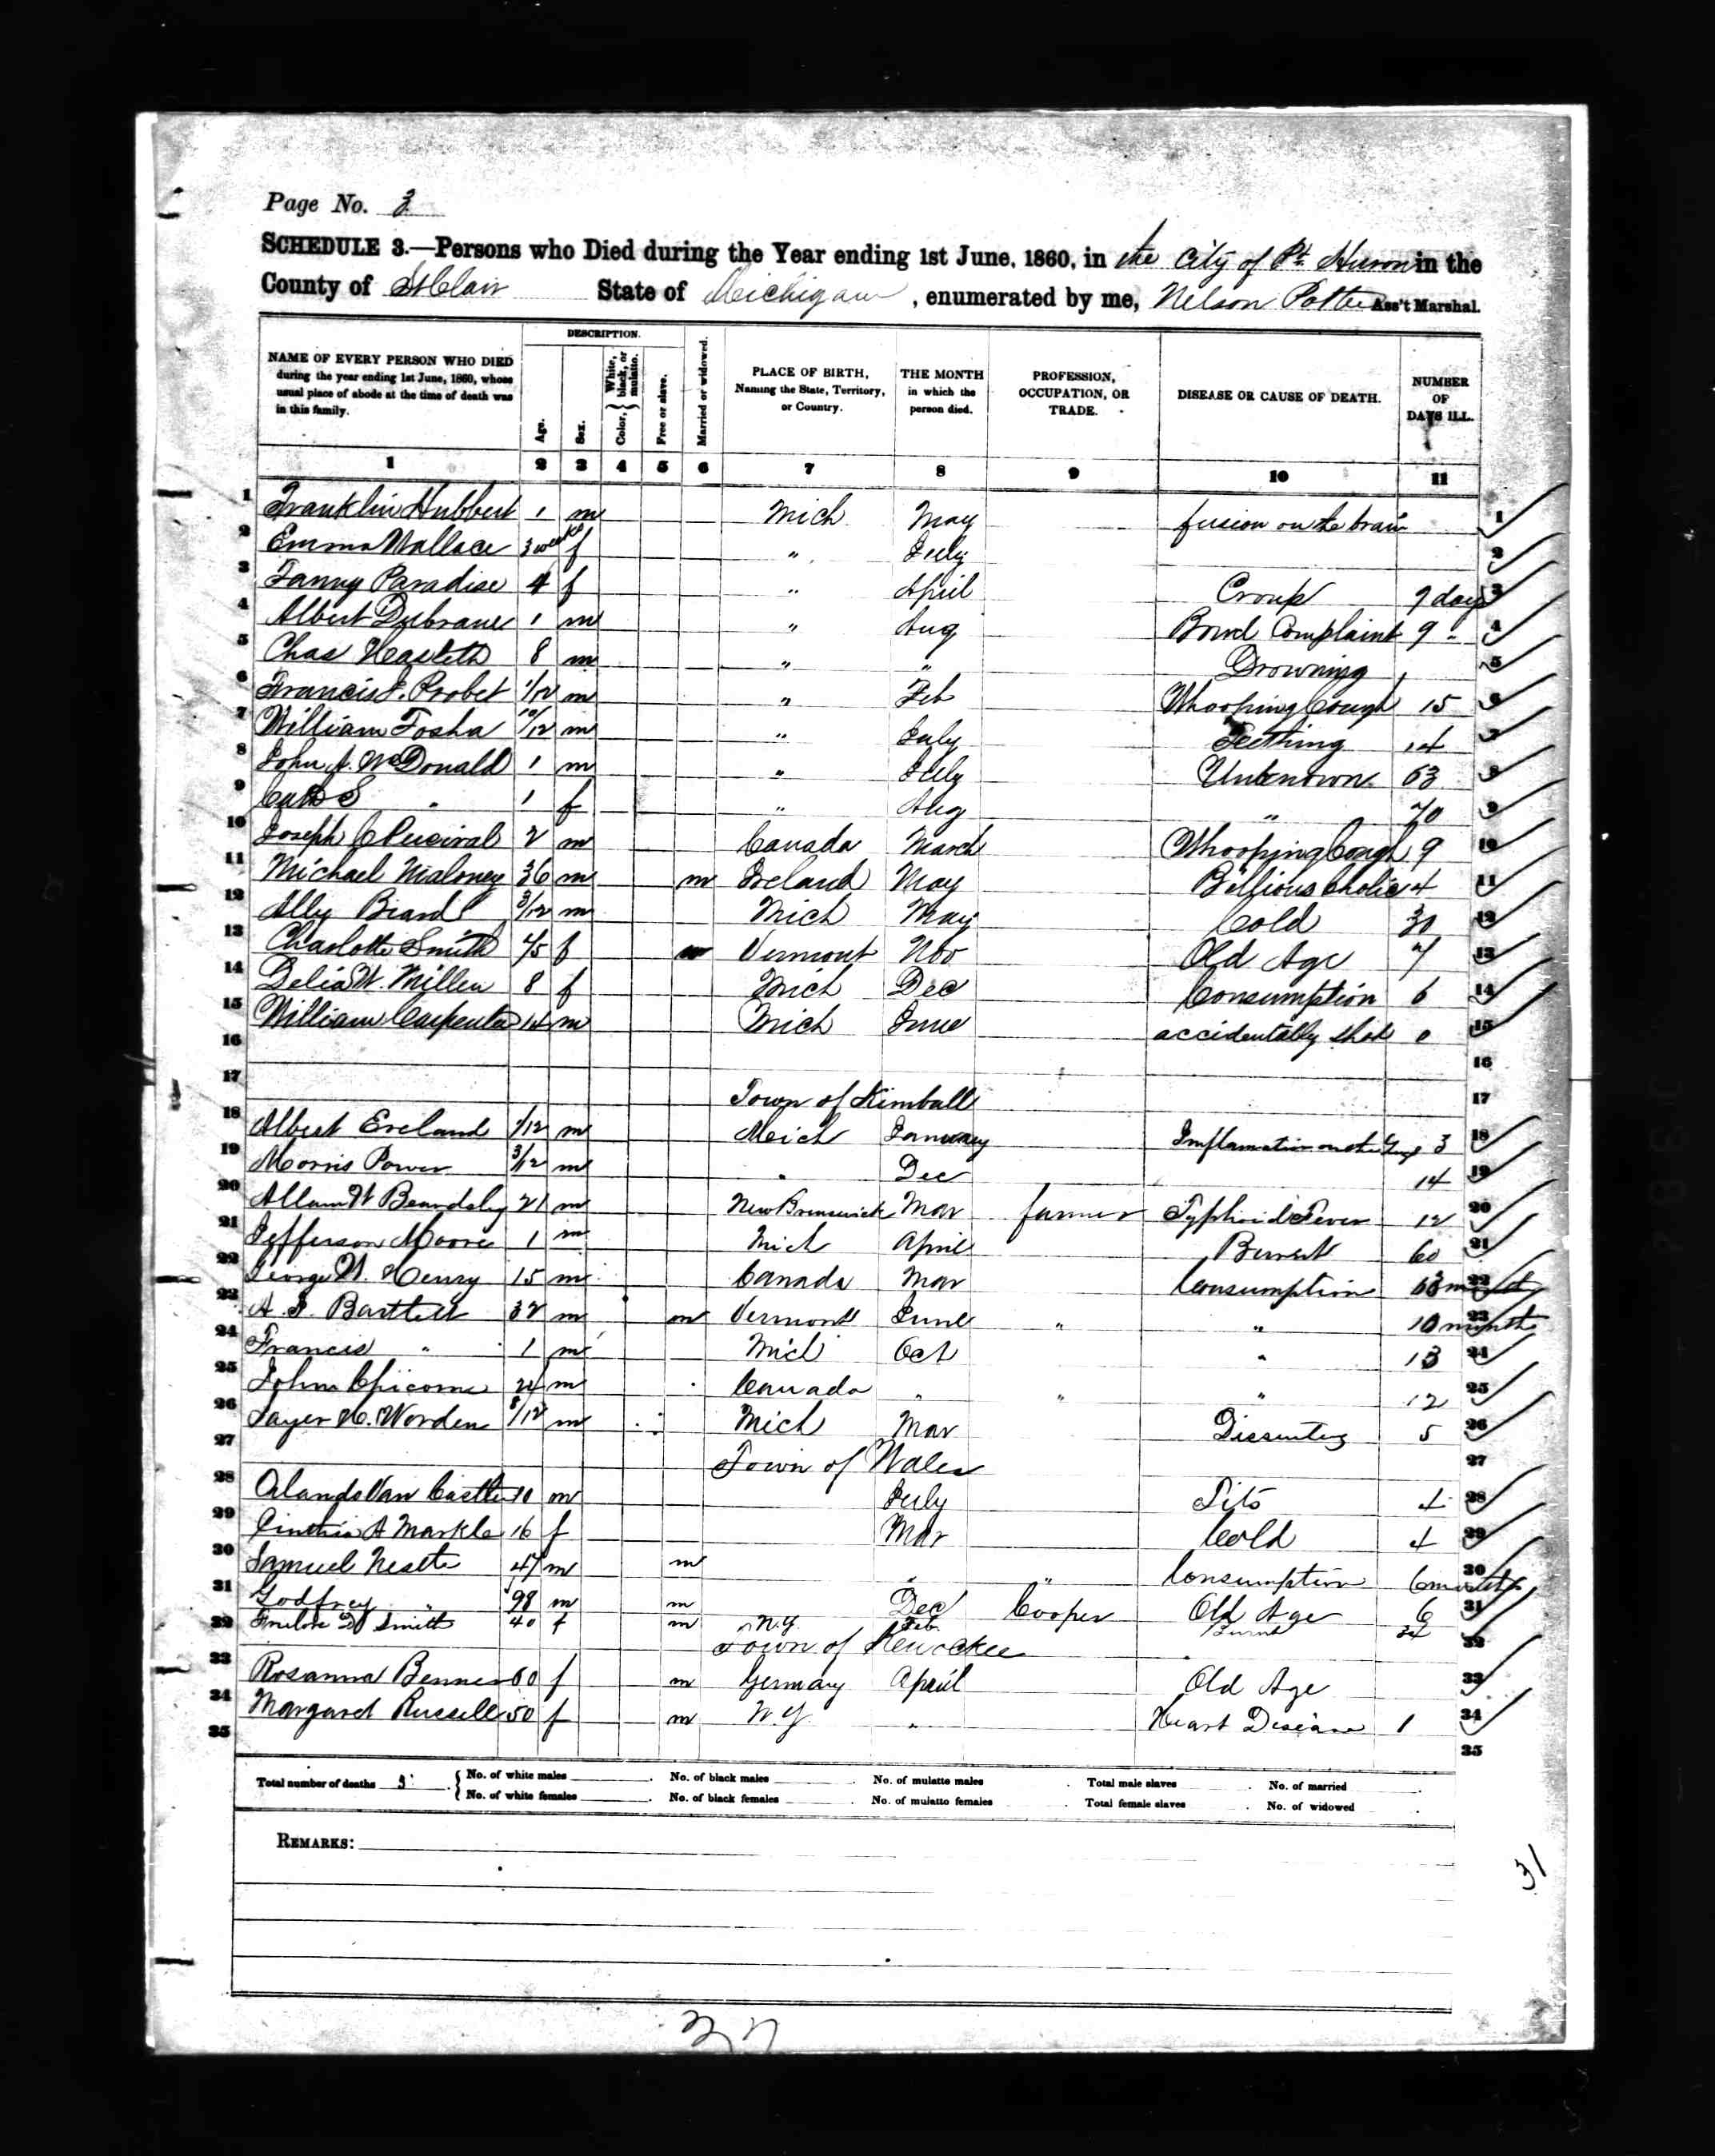 Page No. 3
SCHEDULE 3.—Persons who Died during the Year ending 1st June, 1860, in the City of Pt. Huron in the
County of St Clair State of Michigan, enumerated by me, Nelson Potter Ass't Marshal.
NAME OF EVERY PERSON WHO DIED during the year ending 1st June, 1860, whose usual place of abode at the time of death was in this family.
DESCRIPTION.
Age.
Sex.
Color, { White, black, or mulatto.
Free or slave.
Married or widowed.
PLACE OF BIRTH, Naming the State, Territory, or Country.
THE MONTH in which the person died.
PROFESSION, OCCUPATION, OR TRADE.
DISEASE OR CAUSE OF DEATH.
NUMBER OF DAYS ILL.
1 2 3 4 5 6 7 8 9 10 11
1 Franklin Hubbert 1 m Mich May fusion on the brain 1
2 Emma Wallace 3 weeks f " July 2
3 Fanny Paradise 4 f " April Croup 9 days 3
4 Albert 1 m " Aug Bowel Complaint 9 " 4
5 Chas 8 m " " Drowning 5
6 Francis J. Probet 1/12 m " Feb Whooping Cough 15 6
7 William Fosha 10/12 m " July Teething 14 7
8 John A. McDonald 1 m " July Unknown 63 8
9 S " 1 f " Aug " 70 9
10 Joseph C Percival 2 m Canada March Whooping Cough 9 10
11 Michael Maloney 36 m m Ireland May Billious Cholic 4 11
12 Ally Biard 3/12 m Mich May Cold 30 12
13 Charlotte Smith 75 f Vermont Nov Old Age 7 13
14 Delia W. Miller 8 f Mich Dec Consumption 6 14
15 William Carpenter 14 m Mich June accidentally shot 0 15
16 16
17 Town of Kimball 17
18 Albert Eveland 1/12 m Mich January Imflamation on the 3 18
19 Morris Power 3/12 m " Dec 14 19
20 Allam W Beardsley 21 m New Brunswick Mar farmer Typhoid Fever 12 20
21 Jefferson Moore 1 m Mich April 60 21
22 George W. Henry 15 m Canada Mar Consumption 22
23 A. S. Bartlett 32 m m Vermont June " " 10 months 23
24 Francis " 1 m Mich Oct " 13 24
25 John Chicorne 24 m Canada " " " 12 25
26 Sayer H. Worden 8/12 m Mich Mar Dissentery 5 26
27 Town of Wales 27
28 Orlando Van Castle 10 m July Fits 4 28
29 Cinthia A Markle 16 f Mar Cold 4 29
30 Samuel 47 m m " " Consumption 6 months 30
31 Godfrey " 98 m m Dec Cooper Old Age 6 31
32 Smith 40 f m N.Y. Feb. 32
Town of Kenockee
33 Rosanna Benner 60 f m Germany April Old Age 33
34 Margaret Russell 50 f m N.Y. " Heart Disease 1 34
35 35
Total number of deaths { No. of white males . No. of black males . No. of mulatto males . Total male slaves . No. of married .
No. of white females . No. of black females . No. of mulatto females . Total female slaves . No. of widowed .
REMARKS:
31